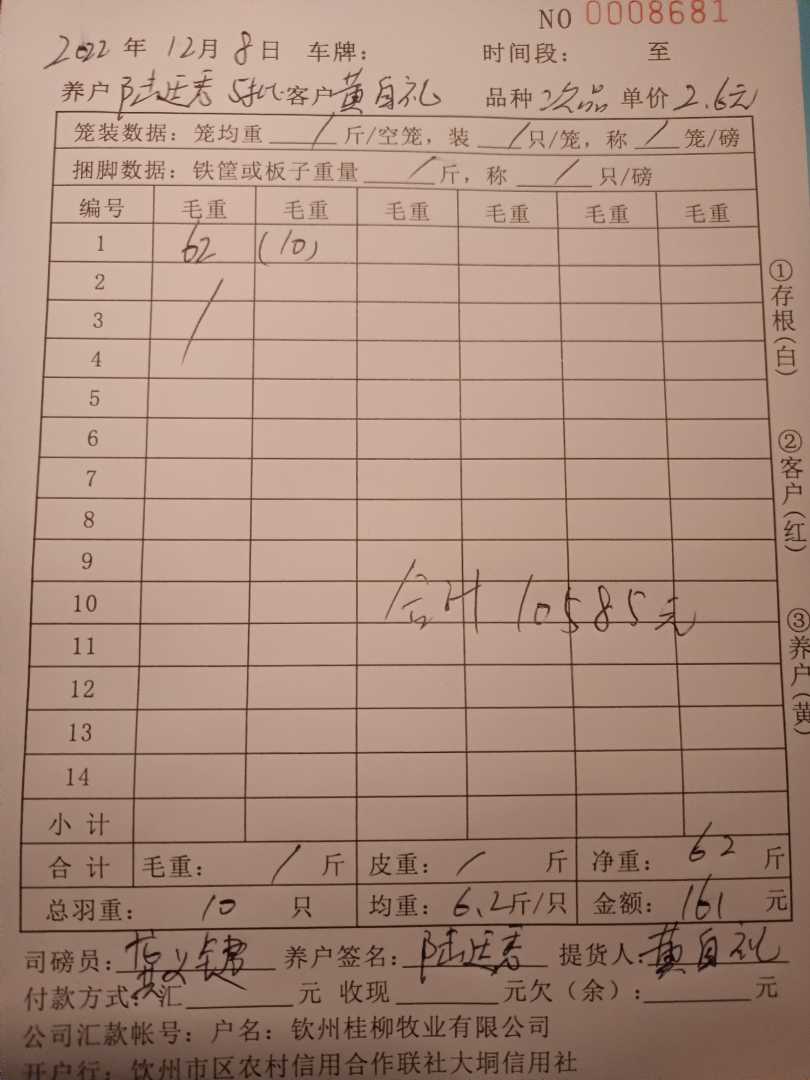 NO 0008681
2022 年 12月 8日 车牌： 时间段： 至
养户 陆廷秀 客户 黄自礼 品种 次品 单价 2.6元
笼装数据：笼均重 / 斤/空笼，装 / 只/笼，称 / 笼/磅
捆脚数据：铁筐或板子重量 / 斤，称 / 只/磅
编号 毛重 毛重 毛重 毛重 毛重 毛重
1 62 (10)
2
3
4
5
6
7
8
9
10
合计 10585元
11
12
13
14
小 计
合 计 毛重： / 斤 皮重： / 斤 净重： 62 斤
总羽重： 10 只 均重： 6.2斤/只 金额： 161 元
司磅员： 养户签名： 陆廷秀 提货人： 黄自礼
付款方式：汇 元 收现 元欠（余）： 元
公司汇款帐号：户名：钦州桂柳牧业有限公司
开户行：钦州市区农村信用合作联社大垌信用社
①存根(白)
②客户(红)
③养户(黄)